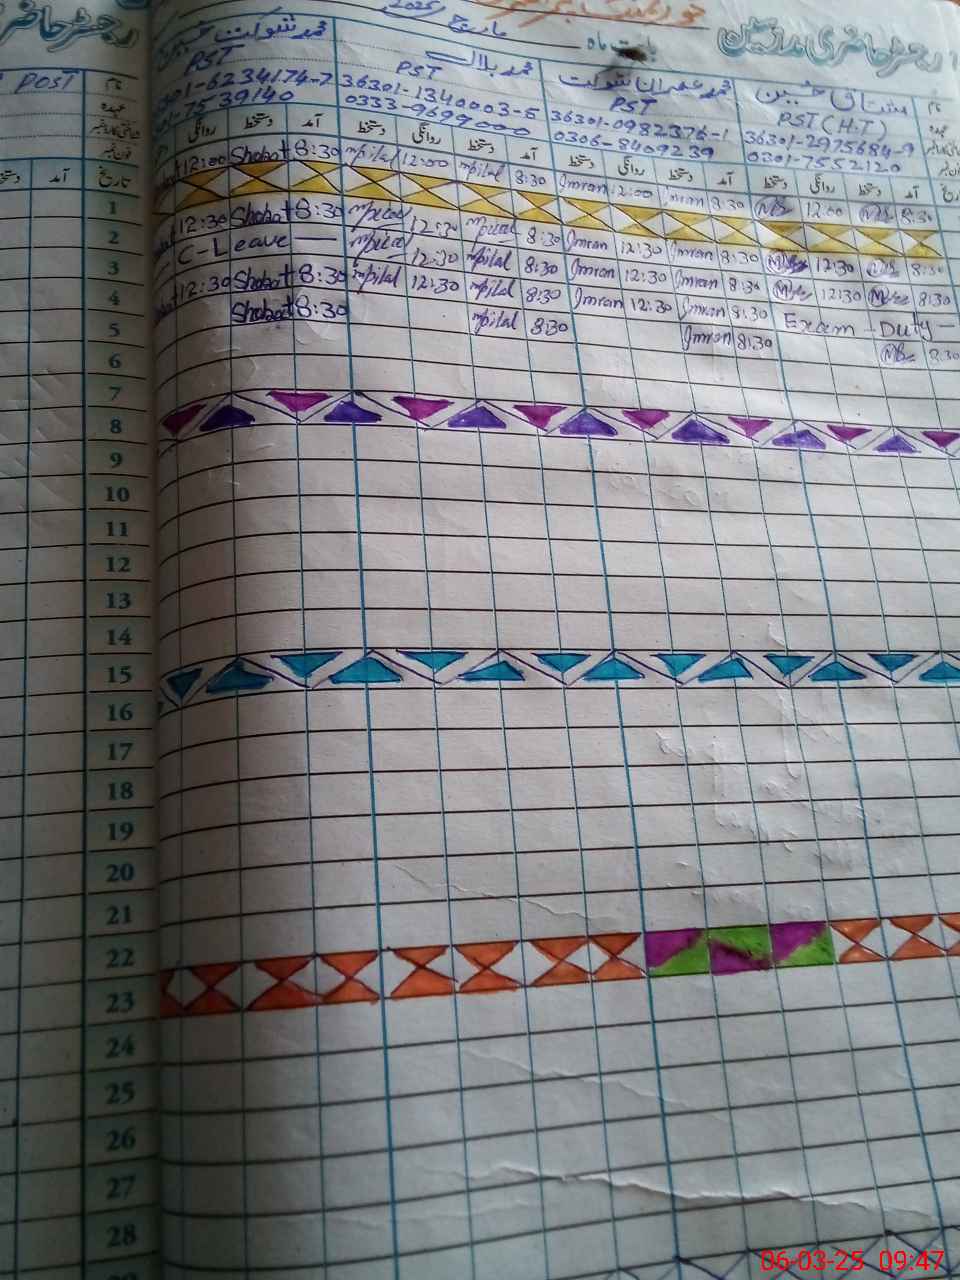 رجسٹر حاضری مدرسین
بابت ماہ مارچ 2025
رجسٹر حاضر
نام
عہدہ
فون نمبر
تاریخ
آمد
POST
محمد شوکت حسین
PST
301-6234174-7
01-75 39140
محمد بلال
PST
36301-1340003-5
0333-9699000
محمد عمران شوکت
PST
36301-0982376-1
0306-8409239
مشتاق حسین
PST (H.T)
36301-2975684-9
0301-7552120
روانگی دستخط آمد دستخط روانگی دستخط آمد دستخط روانگی دستخط آمد دستخط روانگی دستخط آمد
1 12:00 Shobat 8:30 mpilal 12:00 mpilal 8:30 Imran 12:00 Imran 8:30 12:00 8:30
2
3 12:30 Shobat 8:30 mpilal 12:30 mpilal 8:30 Imran 12:30 Imran 8:30 12:30 8:30
4 C-Leave — mpilal 12:30 mpilal 8:30 Imran 12:30 Imran 8:30 12:30 8:30
5 12:30 Shobat 8:30 mpilal 12:30 mpilal 8:30 Imran 12:30 Imran 8:30 Exam - Duty -
6 Shobat 8:30 mpilal 8:30 Imran 8:30 8:30
7
8
9
10
11
12
13
14
15
16
17
18
19
20
21
22
23
24
25
26
27
28
06-03-25 09:47